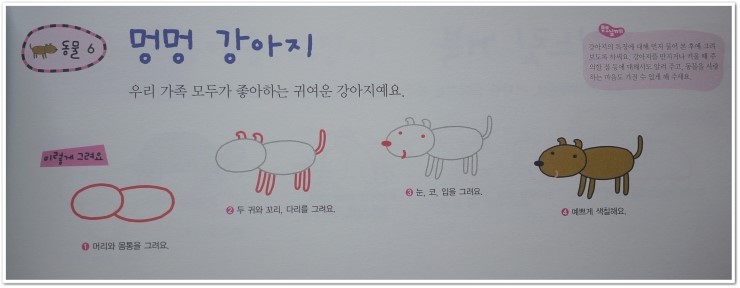 동물 6
멍멍 강아지
우리 가족 모두가 좋아하는 귀여운 강아지예요.
강아지의 특징에 대해 먼저 물어 본 후에 그려
보도록 하세요. 강아지를 만지거나 키울 때 주
의할 점 등에 대해서도 알려 주고, 동물을 사랑
하는 마음도 가질 수 있게 해 주세요.
이렇게 그려요
❶ 머리와 몸통을 그려요.
❷ 두 귀와 꼬리, 다리를 그려요.
❸ 눈, 코, 입을 그려요.
❹ 예쁘게 색칠해요.